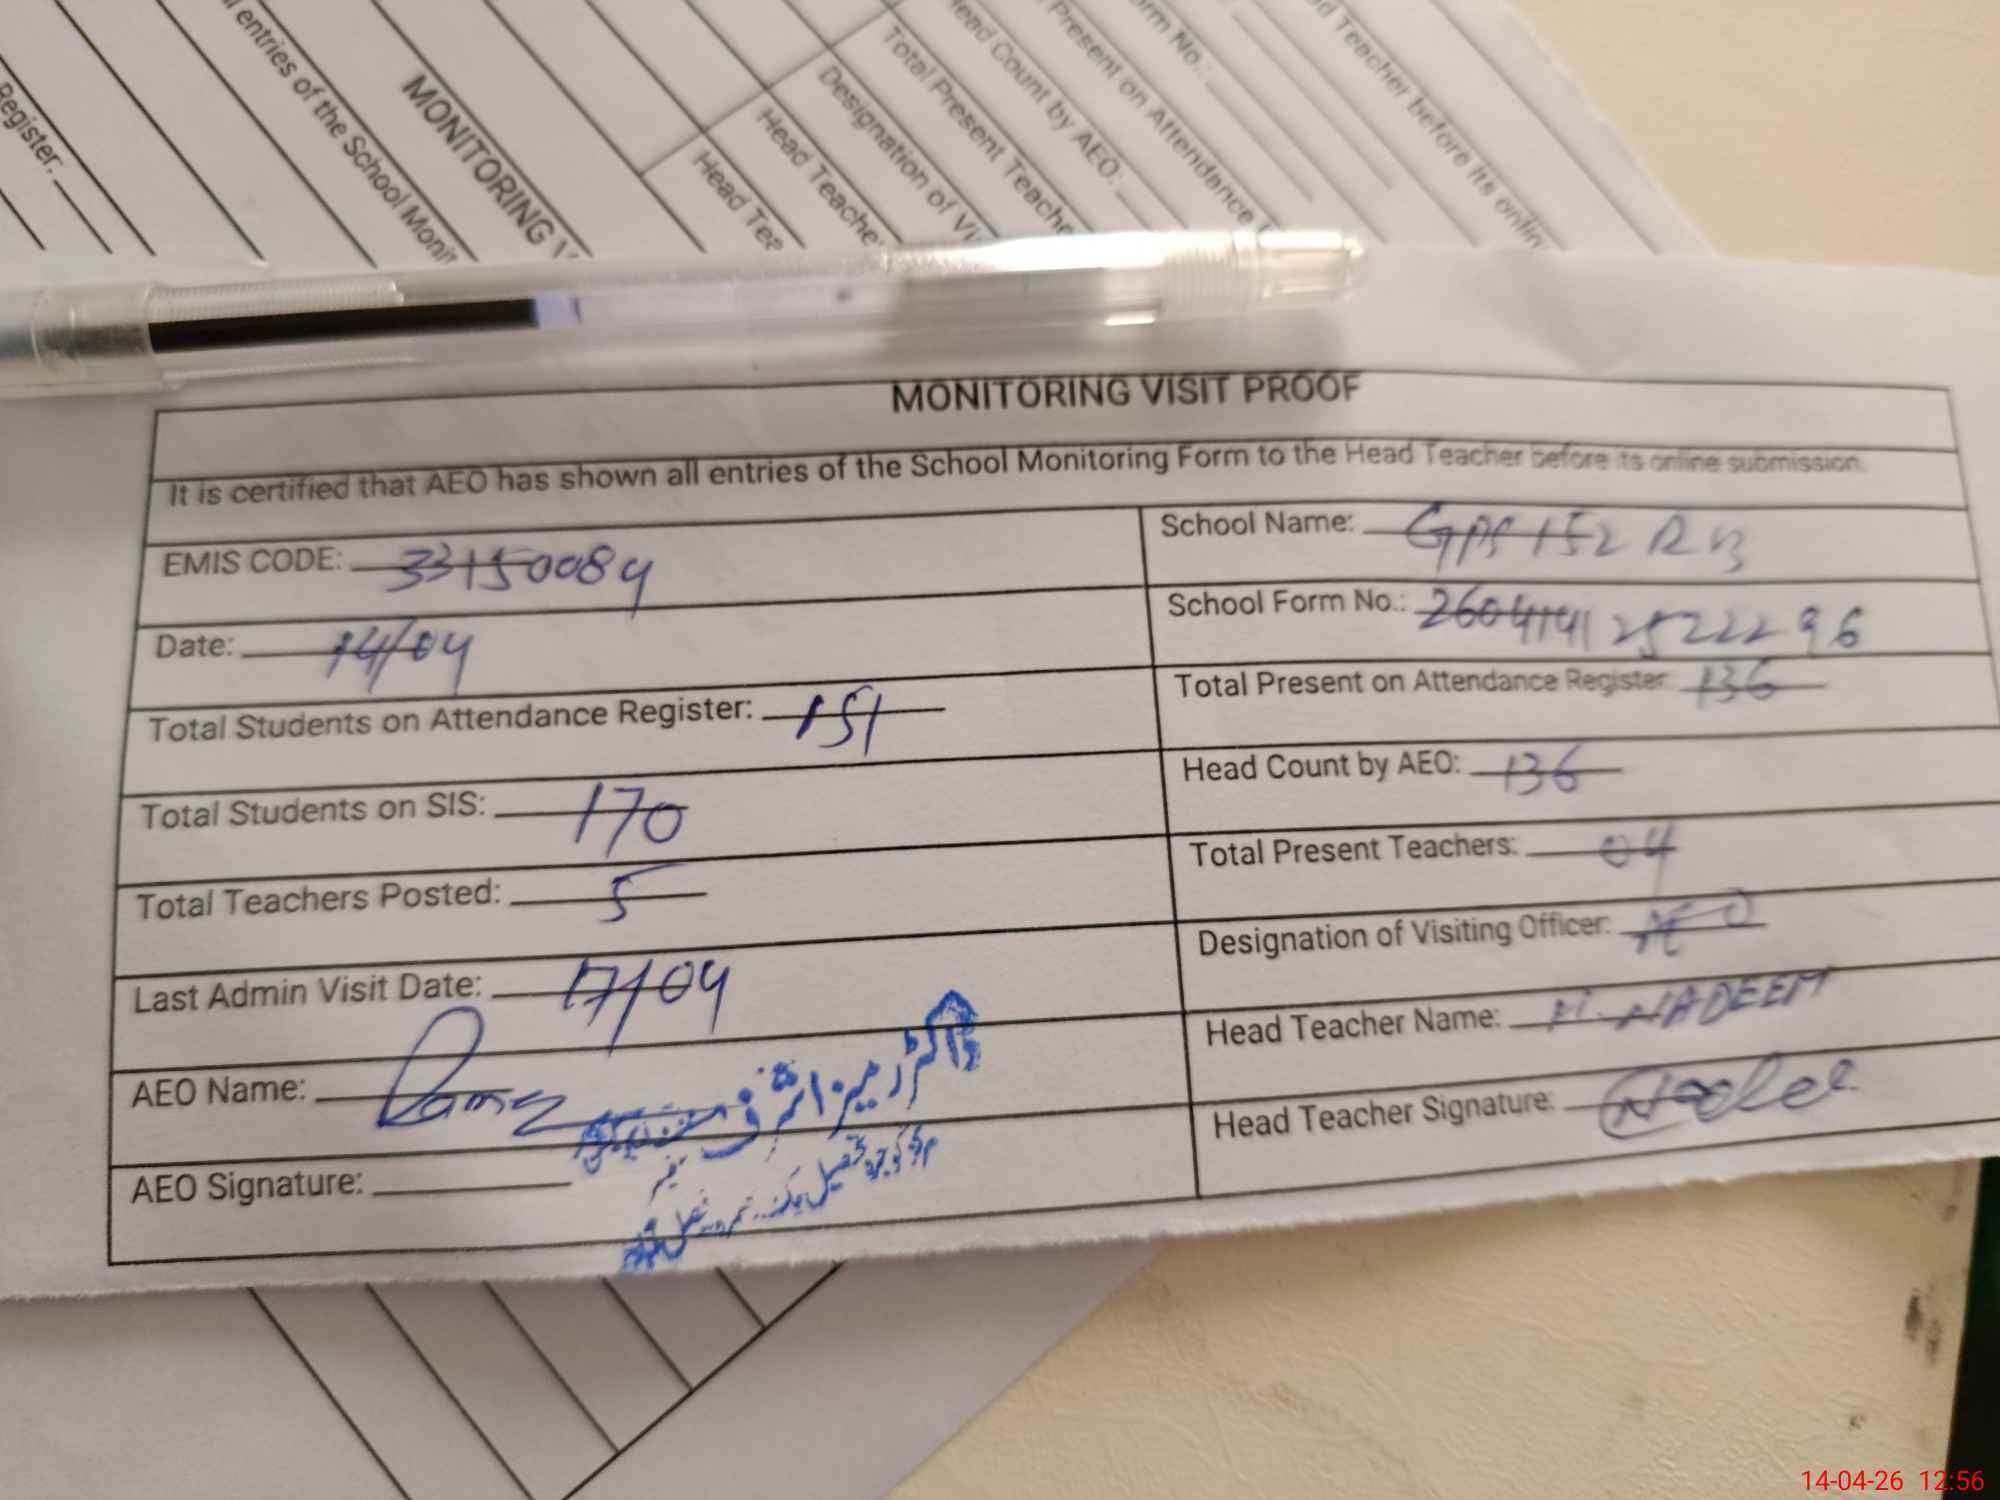 Register:
entries of the School Monit
MONITORING V
Head Tea
Head Teache
Designation of Vi
Total Present Teache
Head Count by AEO:
Present on Attendance
rm No.:
d Teacher before its onlin
MONITORING VISIT PROOF
It is certified that AEO has shown all entries of the School Monitoring Form to the Head Teacher before its online submission.
EMIS CODE: 33150084
School Name: GPS 152 RB
Date: 14/04
School Form No.: 260414125222296
Total Students on Attendance Register: 151
Total Present on Attendance Register: 136
Total Students on SIS: 170
Head Count by AEO: 136
Total Teachers Posted: 5
Total Present Teachers: 04
Last Admin Visit Date: 17/04
Designation of Visiting Officer: AEO
AEO Name:
Head Teacher Name: M. NADEEM
AEO Signature:
Head Teacher Signature:
14-04-26 12:56